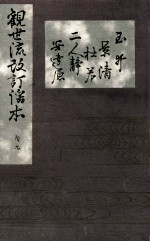 玉井
景清
杜若
二人静
安達原
觀世流改訂謡本